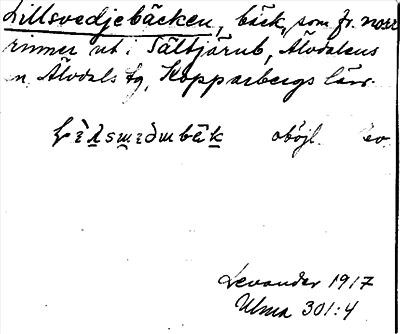 Lillsvedjebäcken, bäck, som fr. norr
rinner ut i Sältjärnb, Älvdalens
sn, Älvdals tg, Kopparbergs län.
oböjl.
Levander 1917
Ulma 301:4